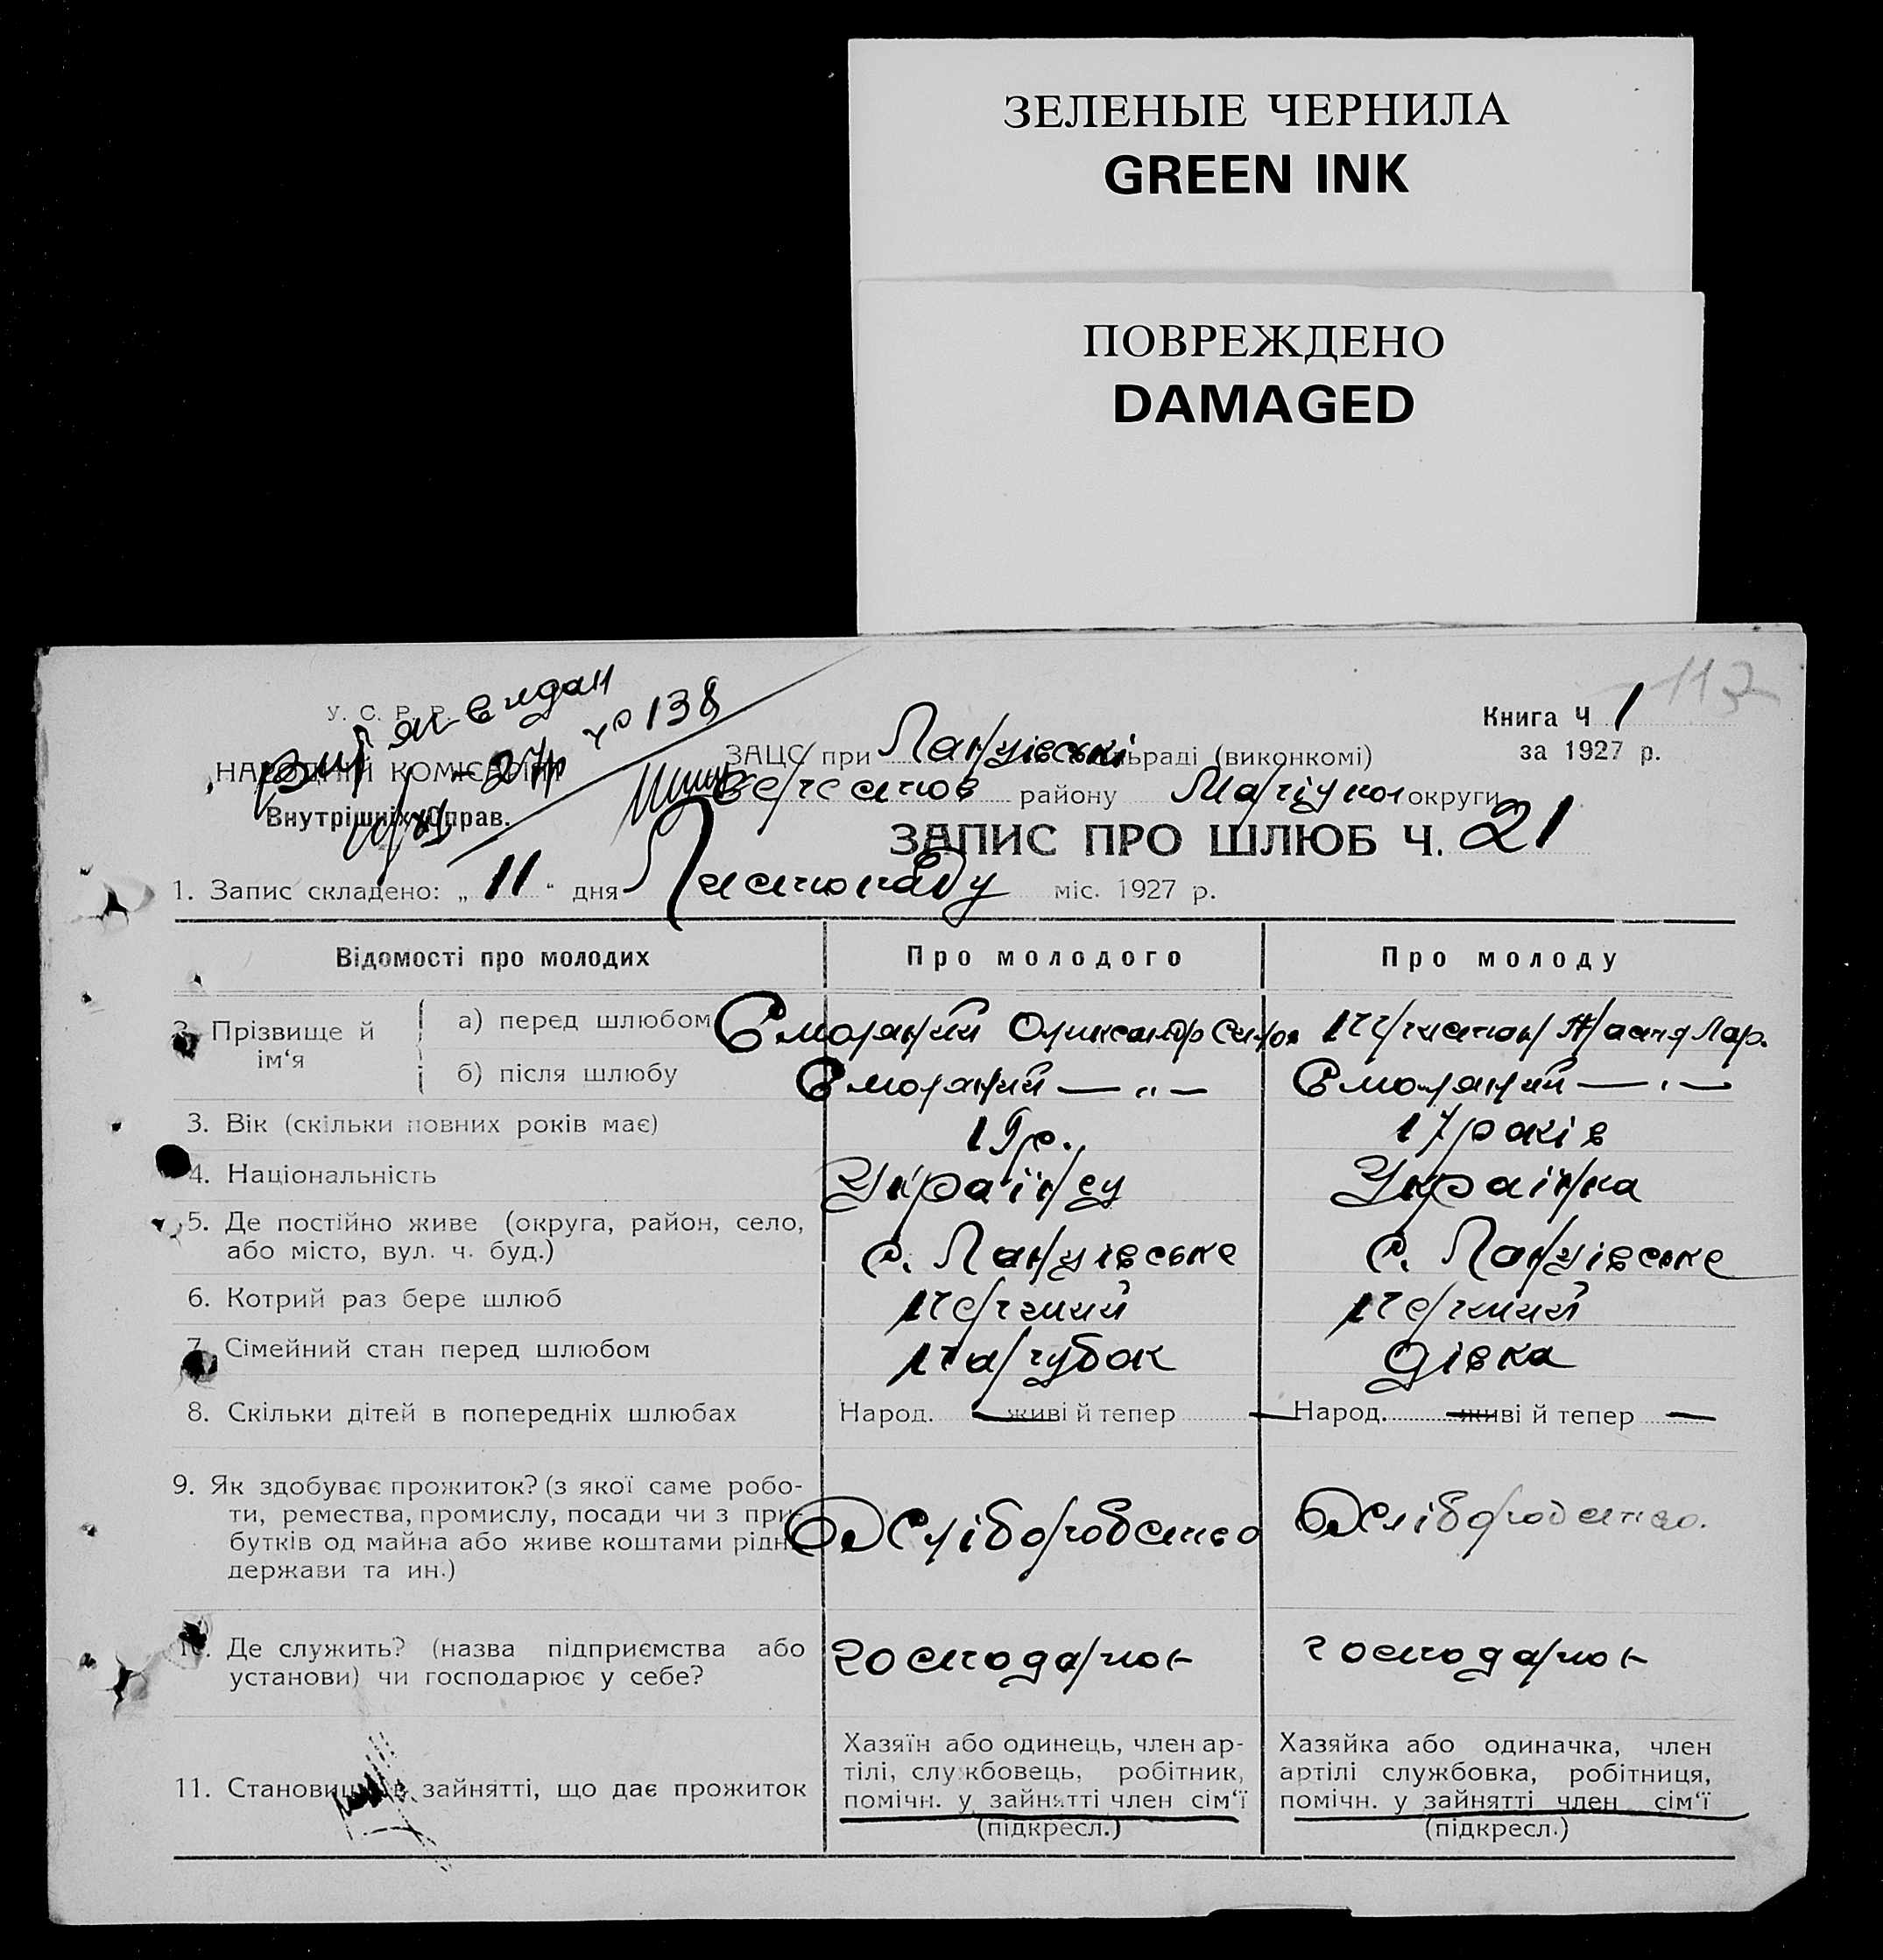 ЗЕЛЕНЫЕ ЧЕРНИЛА
GREEN INK
ПОВРЕЖДЕНО
DAMAGED
117
У. С. Р. Р.
НАРОДНІЙ КОМІСАРІЯТ
Внутрішніх Справ.
№ 138
Книга Ч 1
за 1927 р.
ЗАЦС при Ланцівські ьраді (виконкомі)
району округи
ЗАПИС ПРО ШЛЮБ Ч. 21
1. Запис складено: „ 11 " дня Листопаду міс. 1927 р.
Відомості про молодих
Про молодого
Про молоду
2. Прізвище й ім‘я
а) перед шлюбом
Олександр
Лар.
б) після шлюбу
— „ —
— „ —
3. Вік (скільки повних років має)
19 р.
17 років
4. Національність
Українец
Українка
5. Де постійно живе (округа, район, село,
або місто, вул. ч. буд.)
с. Ланцівське
с. Ланцівське
6. Котрий раз бере шлюб
перший
перший
7. Сімейний стан перед шлюбом
парубок
дівка
8. Скільки дітей в попередніх шлюбах
Народ. — живі й тепер —
Народ. — живі й тепер —
9. Як здобуває прожиток? (з якої саме робо-
ти, ремества, промислу, посади чи з при-
бутків од майна або живе коштами рідні
держави та ин.)
Хліборобство
Хліборобство.
10. Де служить? (назва підприємства або
установи) чи господарює у себе?
господарює
господарює
11. Становище в зайнятті, що дає прожиток
Хазяїн або одинець, член ар-
тілі, службовець, робітник,
помічн. у зайнятті член сім‘ї
(підкресл.)
Хазяйка або одиначка, член
артілі службовка, робітниця,
помічн. у зайнятті член сім‘ї
(підкресл.)